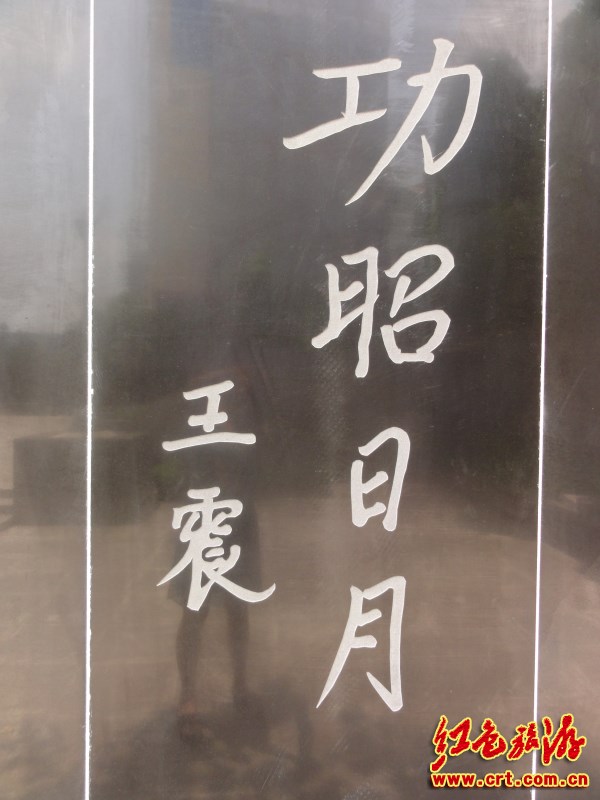 功昭日月
王震
红色旅游
www.crt.com.cn